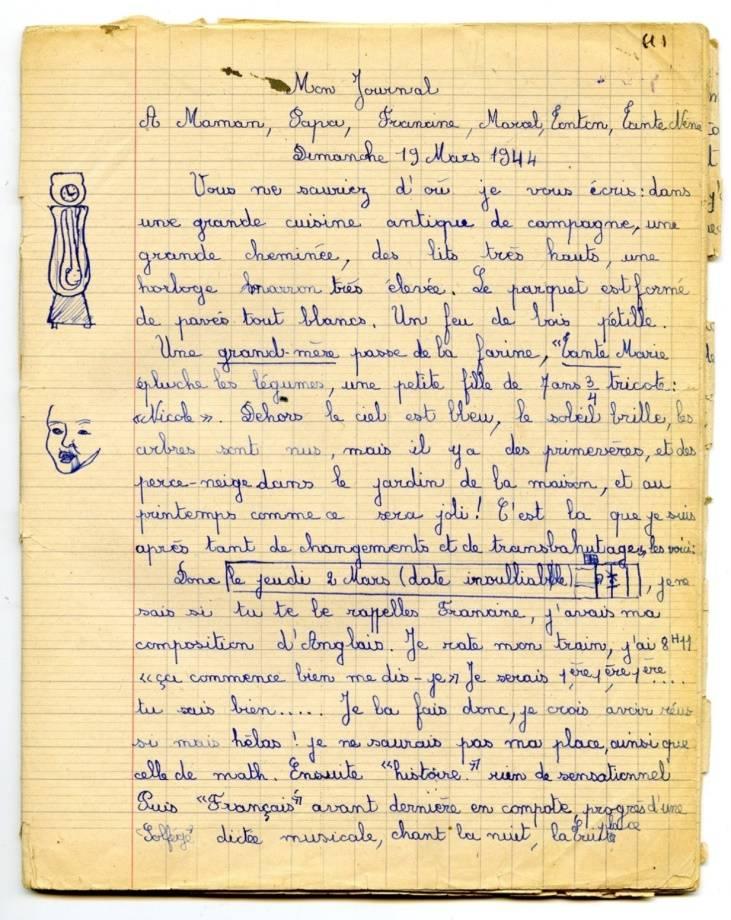 Mon Journal
A Maman, Papa, Francine, Marcel, Tonton, Tante Nène
Dimanche 19 Mars 1944
Vous ne sauriez d'où je vous écris: dans
une grande cuisine antique de campagne, une
grande cheminée, des lits très hauts, une
horloge marron très élevée. Le parquet est formé
de pavés tout blancs. Un feu de bois pétille.
Une grand-mère passe de la farine, "Tante Marie
épluche les légumes, une petite fille de 7 ans 3/4 tricote:
«Nicole». Dehors le ciel est bleu, le soleil brille, les
arbres sont nus, mais il y a des primevères, et des
perce-neige dans le jardin de la maison, et au
printemps comme ce sera joli! C'est là que je suis
après tant de changements et de transbahutages, les voici:
Donc le jeudi 2 Mars (date inoubliable), je ne
sais si tu te le rappelles Francine, j'avais ma
composition d'Anglais. Je rate mon train, j'ai 8H11
«ça commence bien me dis-je» Je serais 1ère, 1ère, 1ère...
tu sais bien..... Je la fais donc, je crois avoir réus
si mais hélas! je ne saurais pas ma place, ainsi que
celle de math. Ensuite "histoire." rien de sensationnel
Puis "Français" avant dernière en compote, progrès d'une place
"Solfège" dictée musicale, chant la nuit, la